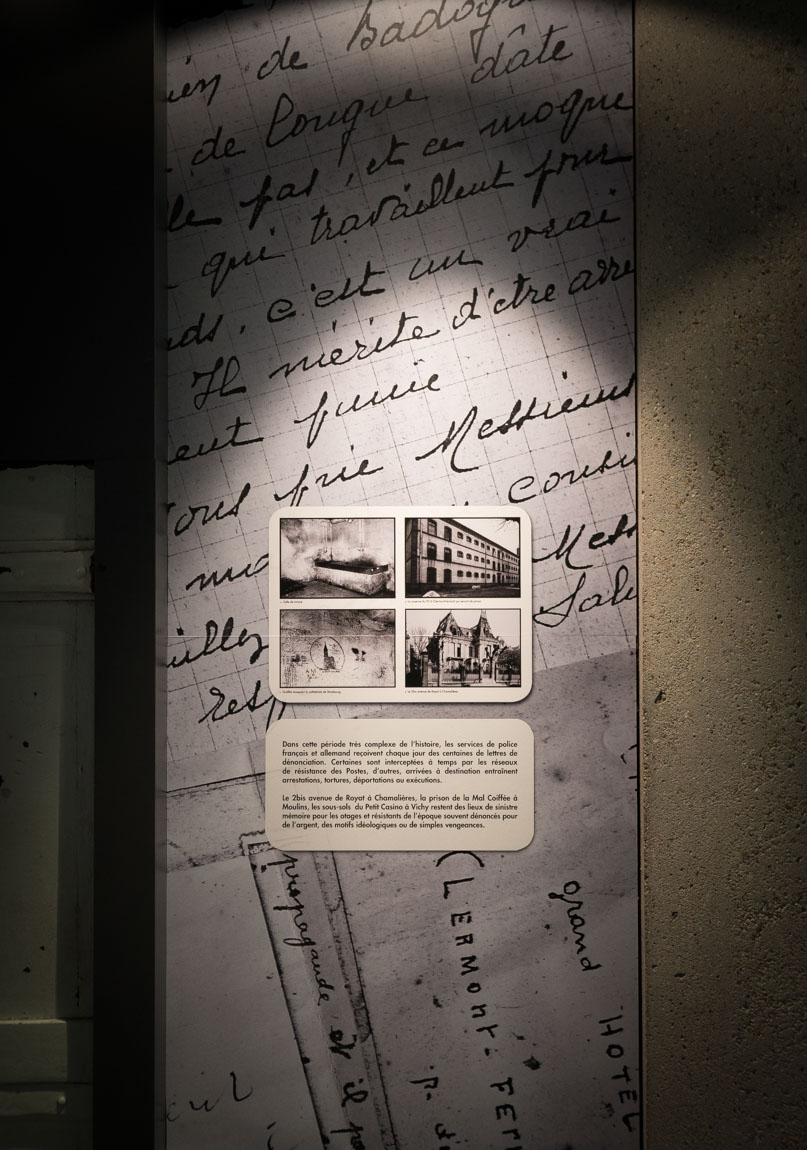 ien de Badog
de longue dâte
le pas, et ce moque
qui travaillent pour
ds, c'est un vrai
Il mérite d'être arre
ent punie
ous prie Messieurs
consi
Mess
uillez
Salu
resp
Salle de torture
Graffiti évoquant la cathédrale de Strasbourg
Le 2bis avenue de Royat à Chamalières
Dans cette période très complexe de l'histoire, les services de police
français et allemand reçoivent chaque jour des centaines de lettres de
dénonciation. Certaines sont interceptées à temps par les réseaux
de résistance des Postes, d'autres, arrivées à destination entraînent
arrestations, tortures, déportations ou exécutions.
Le 2bis avenue de Royat à Chamalières, la prison de la Mal Coiffée à
Moulins, les sous-sols du Petit Casino à Vichy restent des lieux de sinistre
mémoire pour les otages et résistants de l'époque souvent dénoncés pour
de l'argent, des motifs idéologiques ou de simples vengeances.
propagande et il pa
CLERMONT-FERR
grand HOTEL